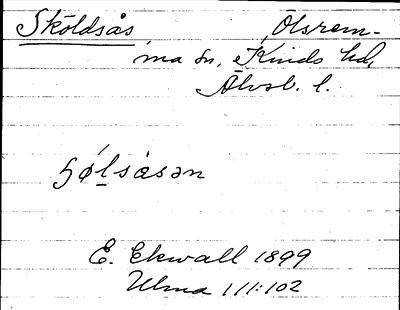 Sköldsås, Ölsrem-
ma sn, Kinds hd,
Älvsb. l.
E. Ekwall 1899
Ulma 111:102